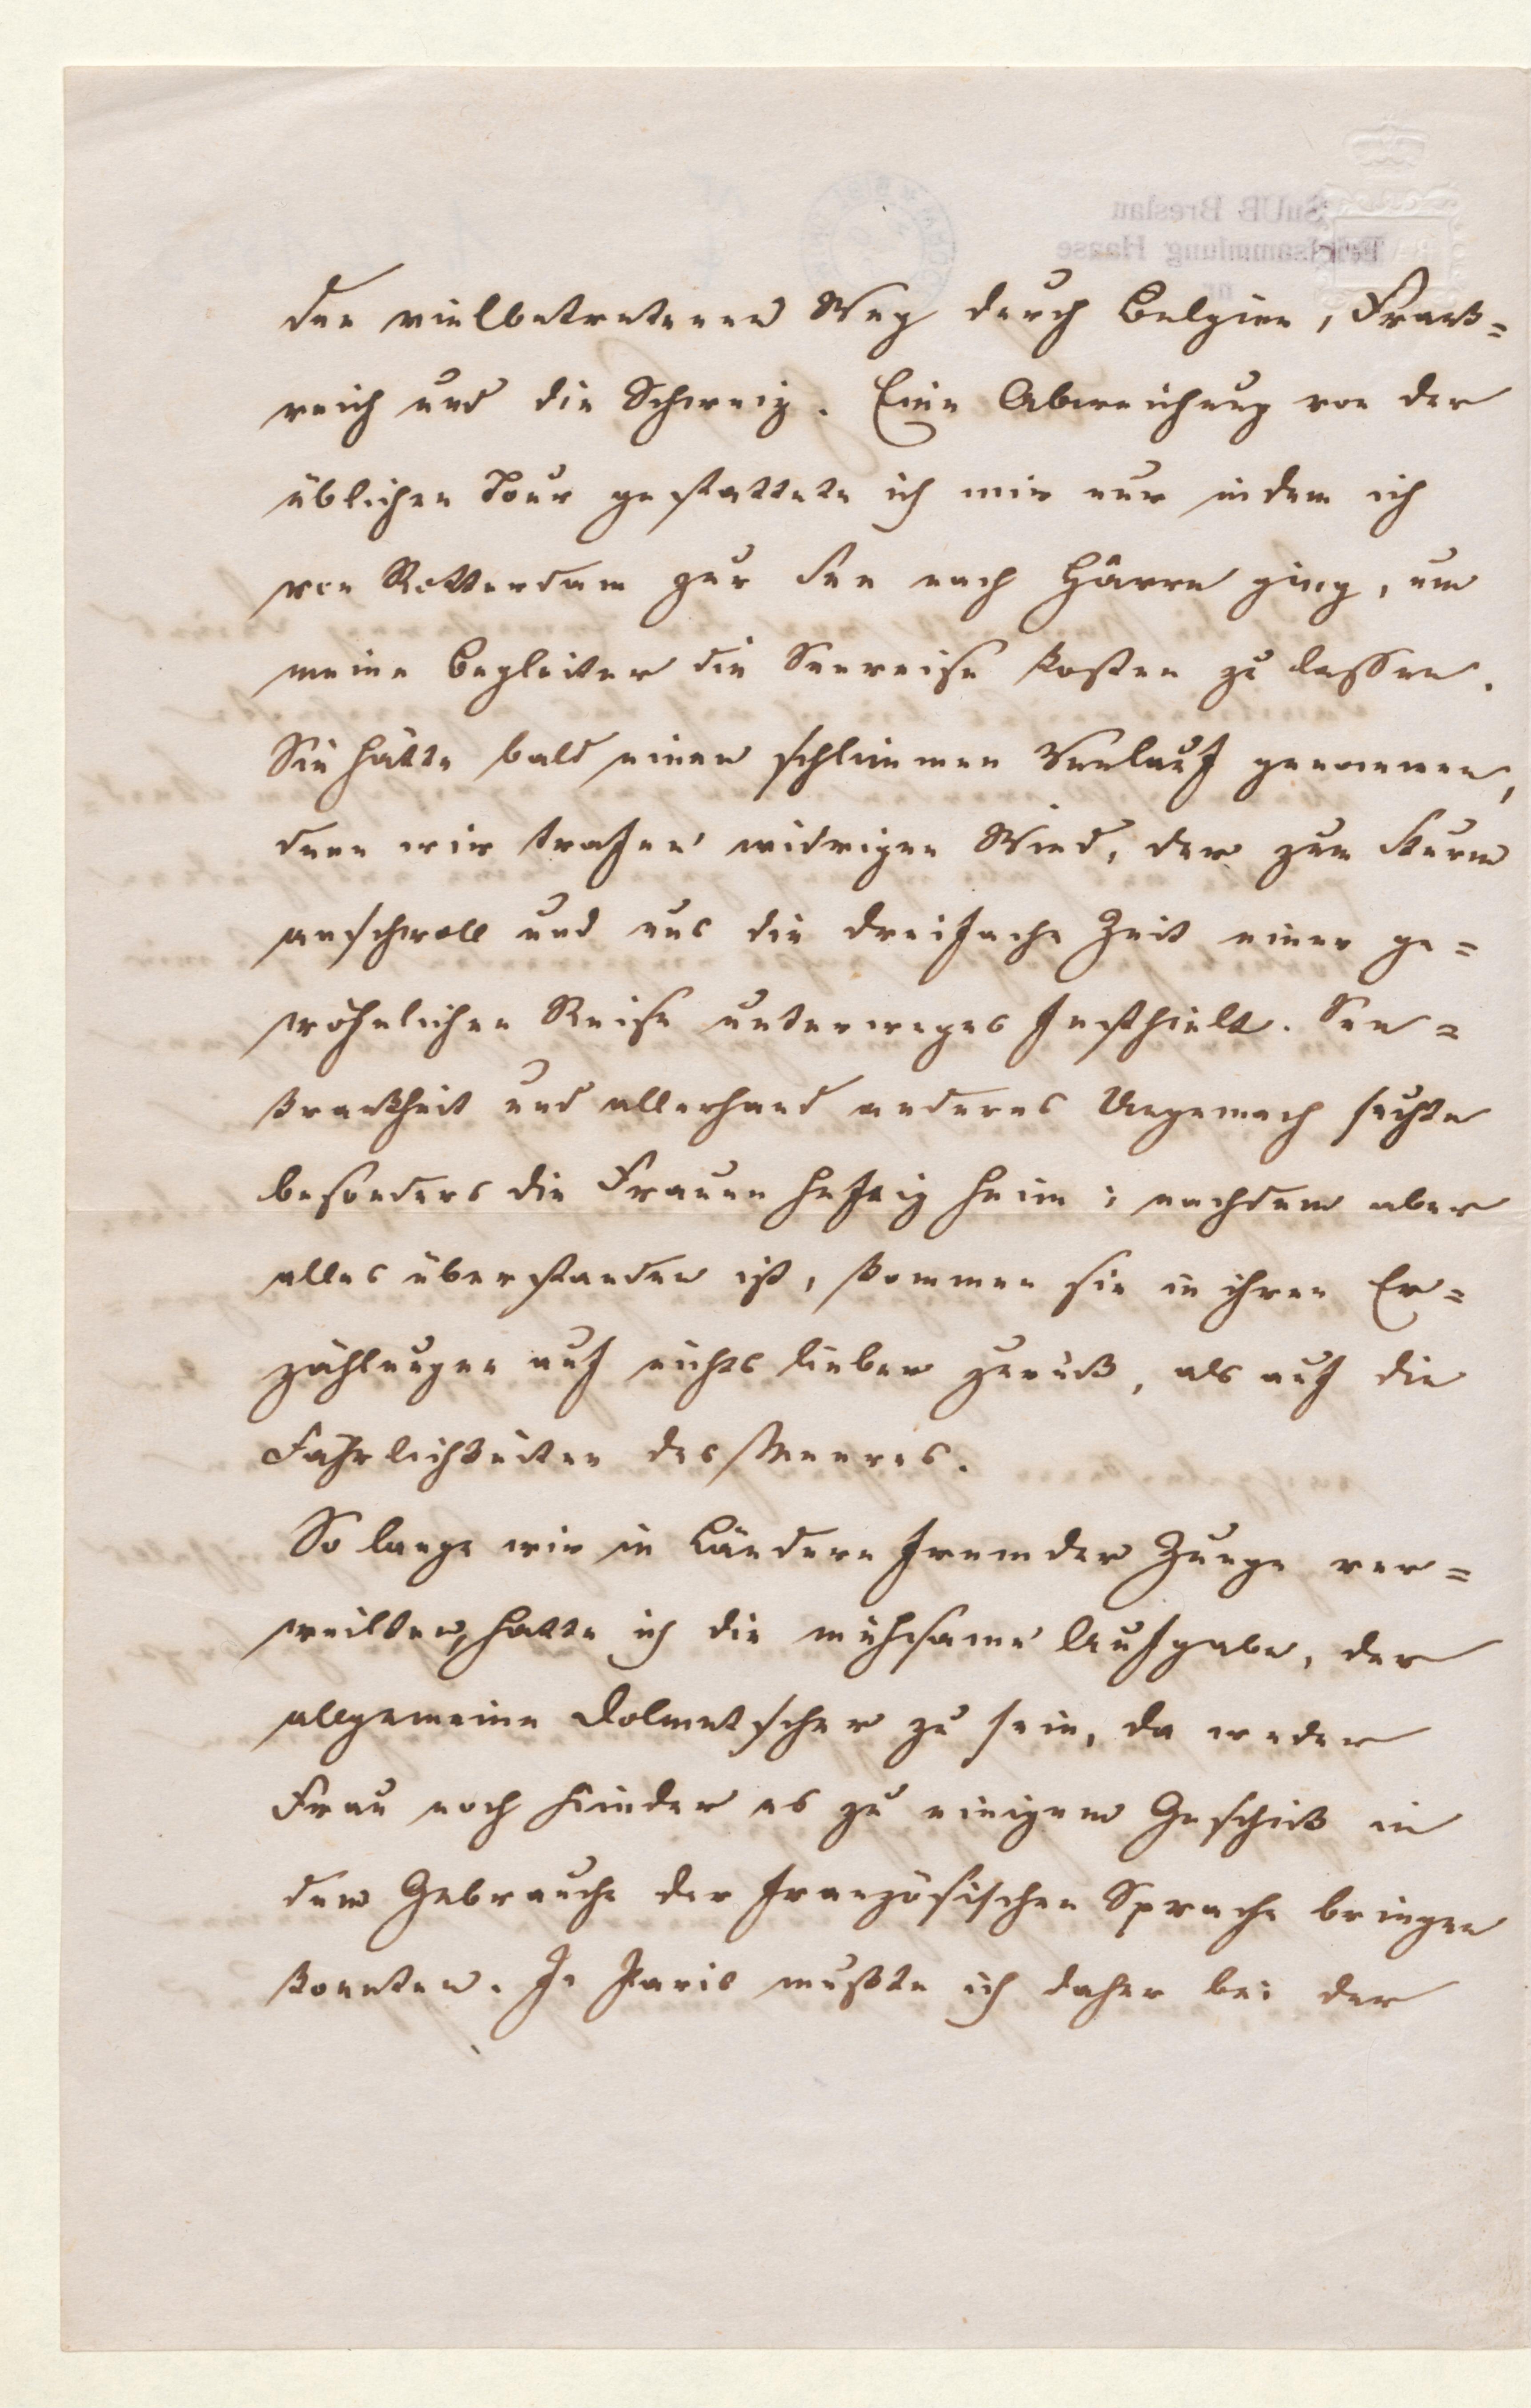 SuUB Breslau
Briefsammlung Haase
den vielbetretenen Weg durch Belgien, Frank=
reich und die Schweiz. Eine Abweichung von der
üblichen Tour gestattete ich mir nur indem ich
von Rotterdam zur See nach Hâvre ging, um
meine Begleiter die Seereise kosten zu lassen.
Sie hätte bald einen schlimmen Verlauf genommen,
denn wir trafen widrigen Wind, der zum Sturm
anschwoll und uns die dreifache Zeit einer ge=
wöhnlichen Reise unterweges festhielt. See=
krankheit und allerhand anderes Ungemach suchte
besonders die Frauen heftig heim; nachdem aber
alles überstanden ist, kommen sie in ihren Er=
zählungen auf nichts lieber zurück, als auf die
Fährlichkeiten des Meeres.
So lange wir in Ländern fremder Zunge ver=
weilten, hatte ich die mühsame Aufgabe, der
allgemeine Dolmetscher zu sein, da weder
Frau noch Kinder es zu einigem Geschick in
dem Gebrauche der französischen Sprache bringen
konnten. In Paris mußte ich daher bei der